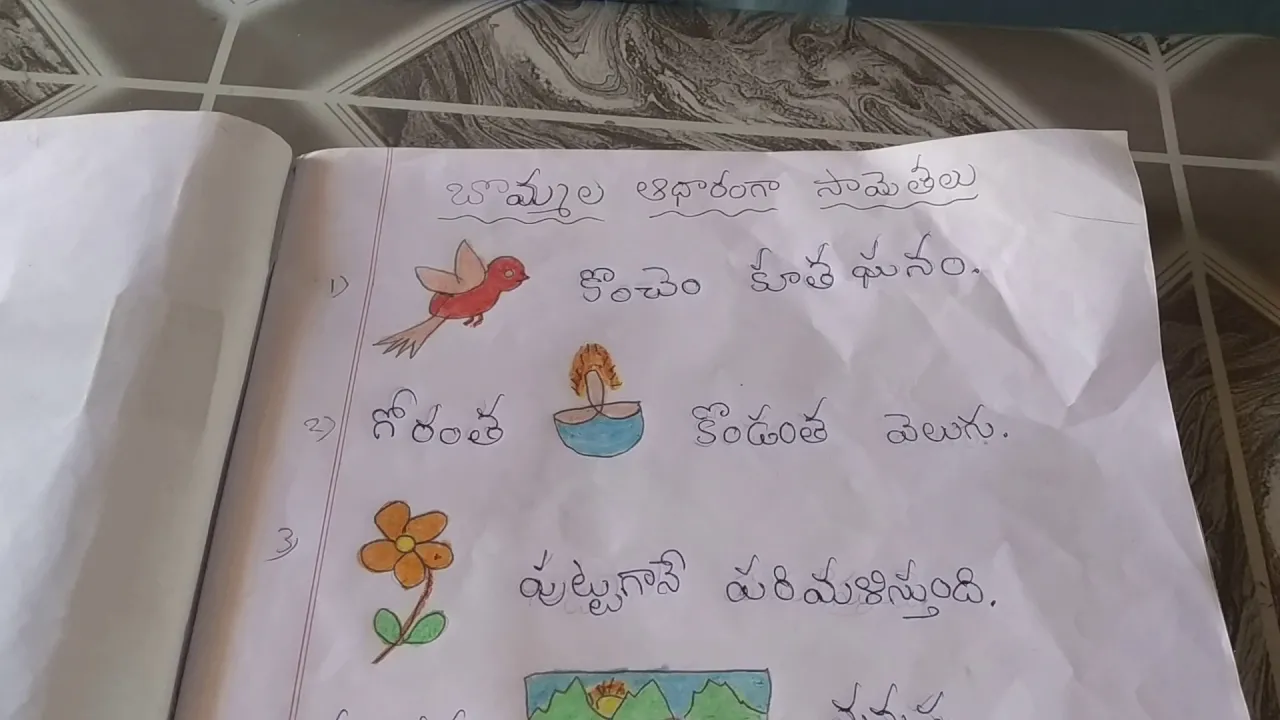 బొమ్మల ఆధారంగా సామెతలు
1) కొంచెం కూత ఘనం.
2) గోరంత కొండంత వెలుగు.
3) పుట్టుగానే పరిమళిస్తుంది.